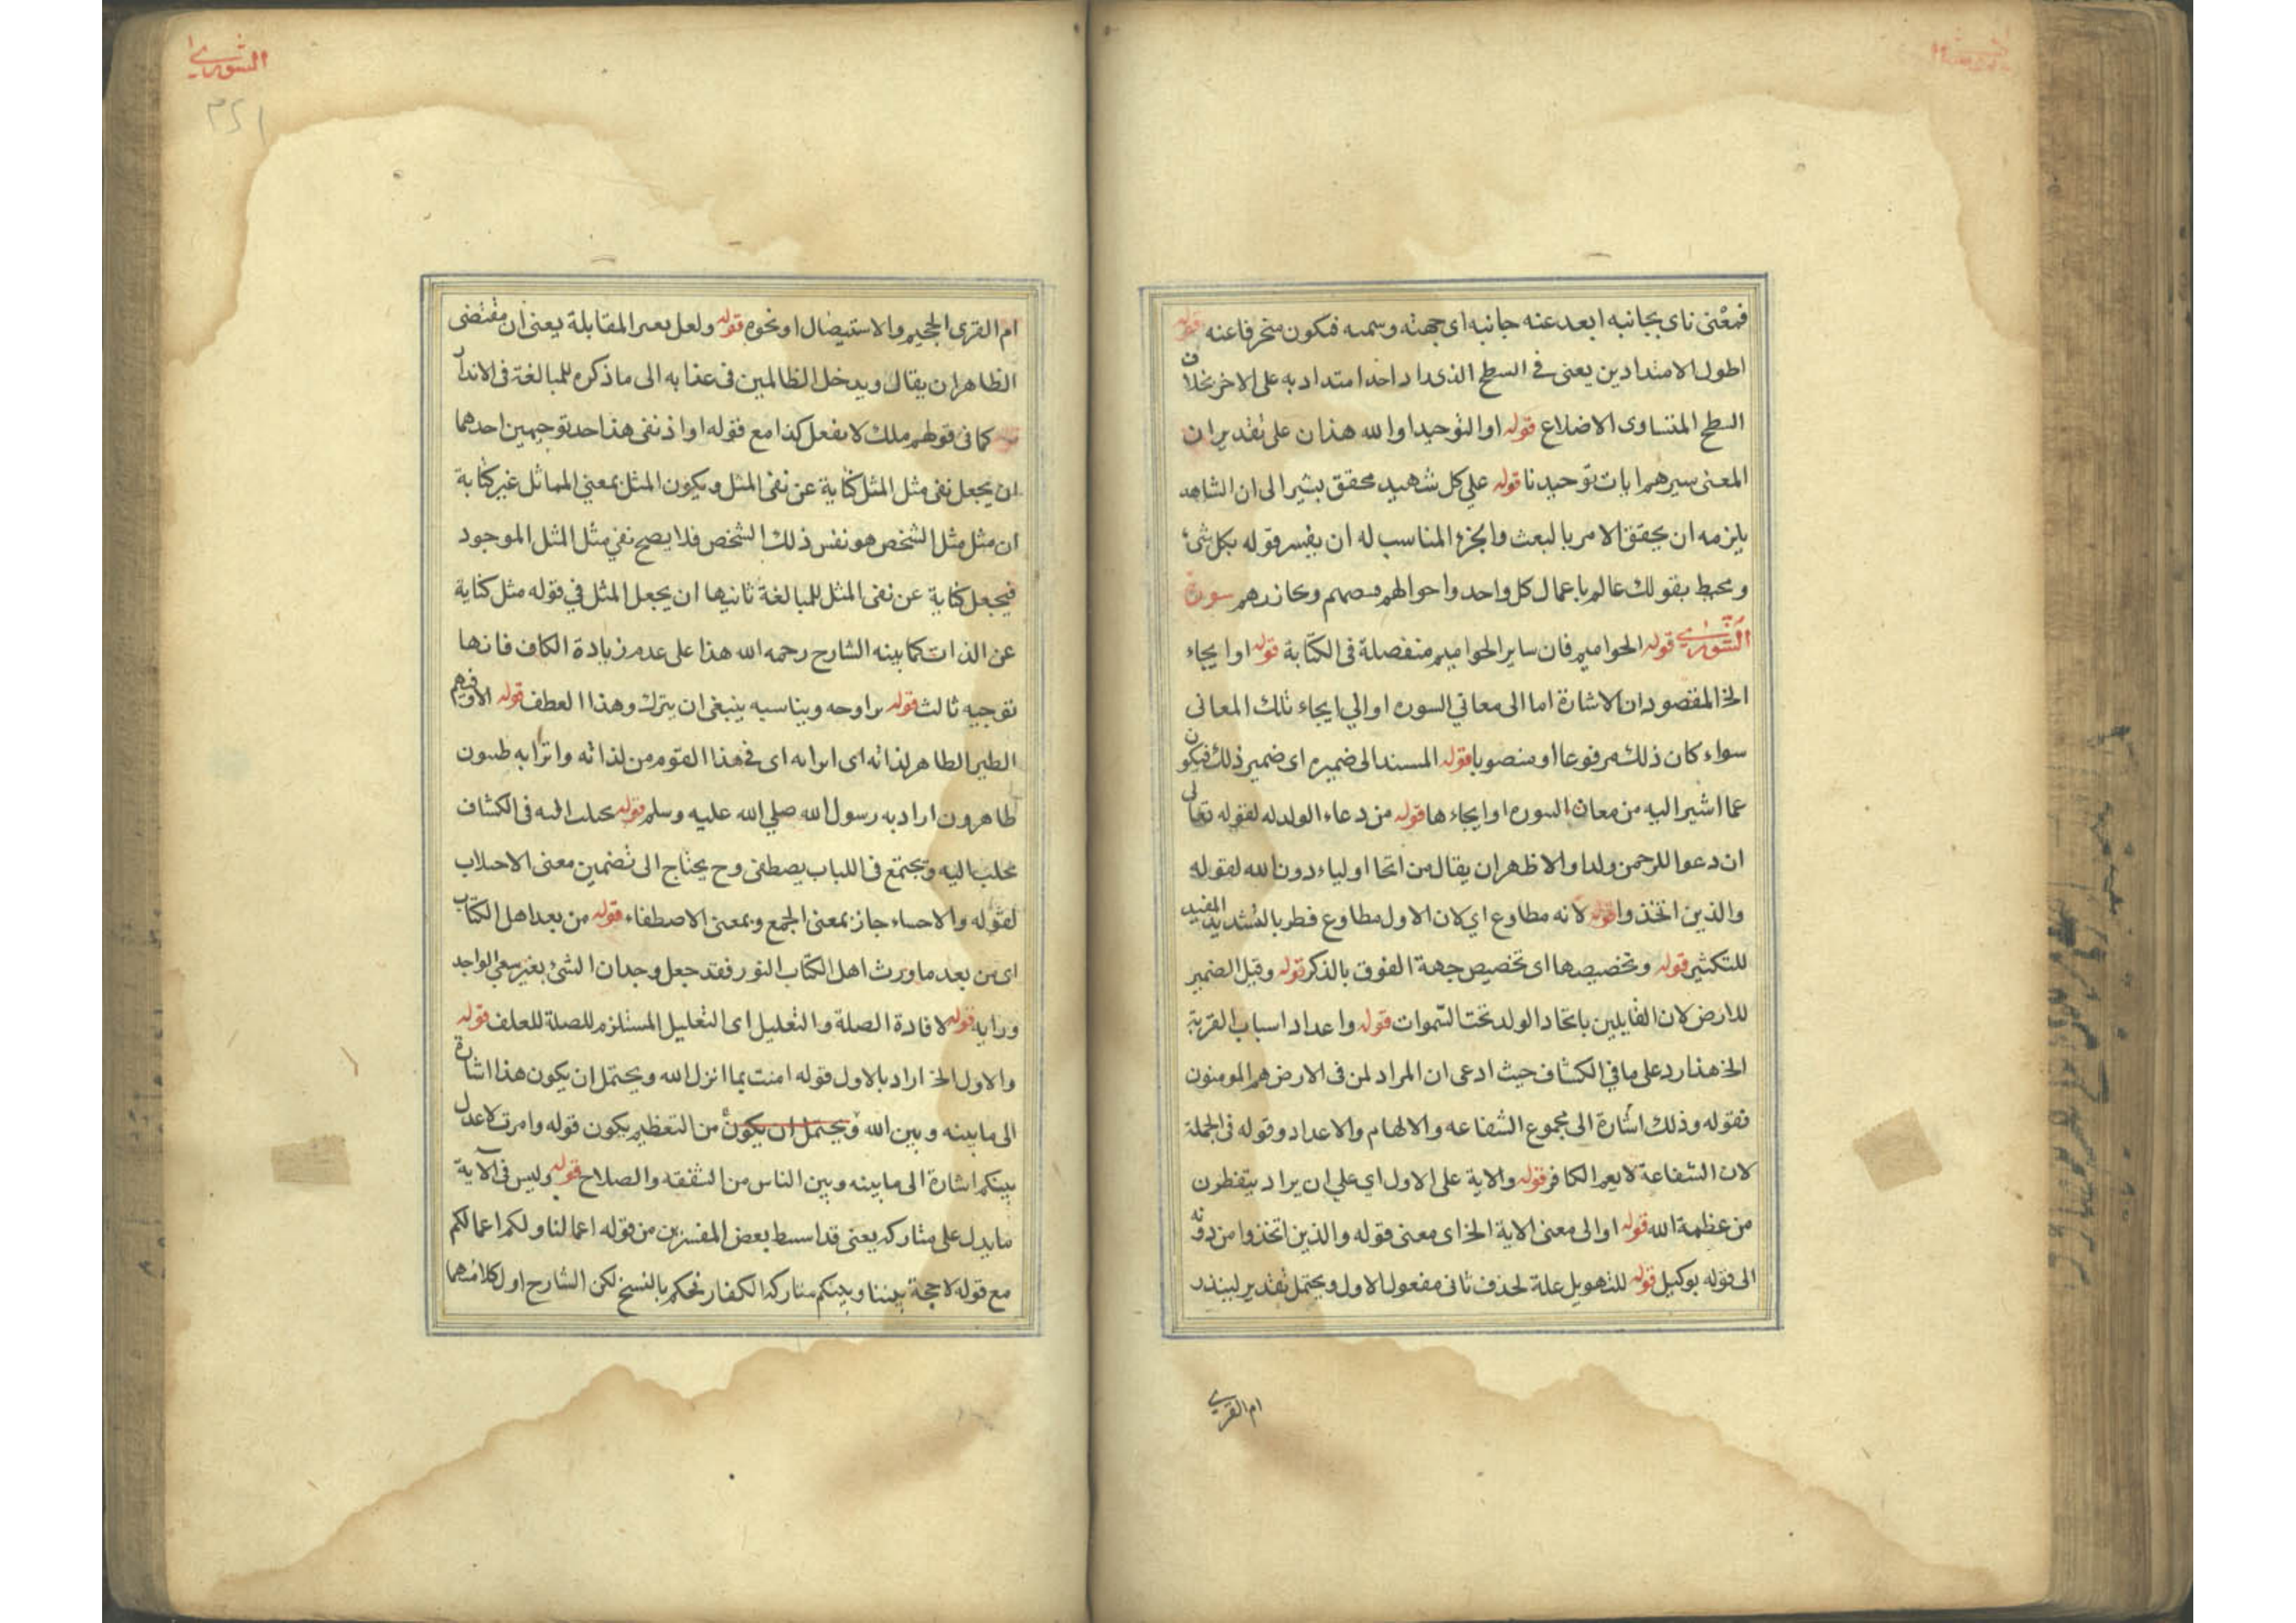 فمعنى ناى بجانبه ابعد عنه جانبه اى جهته وسمته فيكون منحرفا عنه قوله
اطول الامتدادين يعنى فى السطح الذى احد امتداد به على الاخر بخلاف
السطح المتساوى الاضلاع قوله او التوحيد او الله هذان على تقدير ان
المعنى سيرهم ايات توحيدنا قوله على كل شهيد محقق يشير الى ان الشاهد
يلزمه ان يحقق الامر بالبعث والجزء المناسب له ان يفسر قوله بكل شئ
ومحيط بقولك عالم باعمال كل واحد واحوالهم ومجازيهم سورة
الشورى قوله الحواميم فان ساير الحواميم منفصلة فى الكتابة قوله او ايحاء
الخ المقصود ان الاشارة اما الى معانى السوره او الى ايحاء تلك المعانى
سواء كان ذلك مرفوعا او منصوبا قوله المسند الى ضميره اى ضمير ذلك فيكون
عما اشير اليه من معان السوره او ايحاءها قوله من دعاء الولد له لقوله تعالى
ان دعوا للرحمن ولدا والاظهر ان يقال من اتخا اولياء دون الله لقوله
والذين اتخذوا قوله لانه مطاوع اى لان الاول مطاوع فطر بالتشديد المفيد
للتكثير قوله وتخصيصها اى تخصيص جهة الفوق بالذكر قوله وقيل الضمير
للارض لان القايلين باتخاد الولد تحت السموات قوله واعداد اسباب القربة
الخ هذا رد على ما فى الكشاف حيث ادعى ان المراد لمن فى الارض هم المومنون
فقوله وذلك اشارة الى مجموع الشفاعه والالهام والاعداد وقوله فى الجملة
لان الشفاعة لا يعم الكافر قوله والاية على الاول اى على ان يراد يتفطرن
من عظمة الله قوله او الى معنى الاية الخ اى معنى قوله والذين اتخذوا من دونه
الى قوله بوكيل قوله للتهويل علة لحذف ثانى مفعول الاول ويحتمل تقدير لينذر
ام القرى
الشورى
٣٢١
ام القرى الجحيم والاستيصال او نحوه قوله ولعل المقابلة يعنى ان مقتضى
الظاهر ان يقال ويدخل الظالمين فى عذابه الى ما ذكره للمبالغة فى الانذار
قوله كما فى قولهم ملك لا يفعل كذا مع قوله او اذ نفى هذا احد توجيهين احدهما
ان يجعل نفى مثل المثل كناية عن نفى المثل ويكون المثل بمعنى المماثل غير كناية
ان مثل مثل الشخص هو نفس ذلك الشخص فلا يصح نفى مثل المثل الموجود
فيجعل كناية عن نفى المثل للمبالغة ثانيها ان يجعل المثل فى قوله مثل كناية
عن الذات كما بينه الشارح رحمه الله هذا على عدم زيادة الكاف فانها
توجيه ثالث قوله يراوحه ويناسبه ينبغى ان يترك وهذا العطف قوله الا وفيهم
الطيب الطاهر لذاته اى اى فى هذا القوم من لذاته واترابه طيبون
طاهرون اراد به رسول الله صلى الله عليه وسلم قوله فى الكشاف
يجلب اليه ويجتمع فى اللباب يصطفى وح يحتاج الى تضمين معنى الاجتلاب
لقوله والاجتباء جاز بمعنى الجمع وبمعنى الاصطفاء قوله من بعد اهل الكتاب
اى من بعد ما ورث اهل الكتاب التور فقد جعل وجدان الشئ بغير سعى الواجد
وراية قوله لافادة الصلة والتعليل اى التعليل المستلزم للصلة للعلف قوله
والاول الخ اراد بالاول قوله امنت بما انزل الله ويحتمل ان يكون هذا اشارة
الى ما بينه وبين الله ويحتمل ان يكون من التعظيم يكون قوله وامرت لاعدل
بينكم اشارة الى ما بينه وبين الناس من الشفقه والصلاح قوله وليس فى الاية
ما يدل على متاركه يعنى قد بعض المفسرين من قوله اعمالنا ولكم اعمالكم
مع قوله لا حجة بيننا وبينكم متاركة الكفار فحكم بالنسخ لكن الشارح اول كلامهما